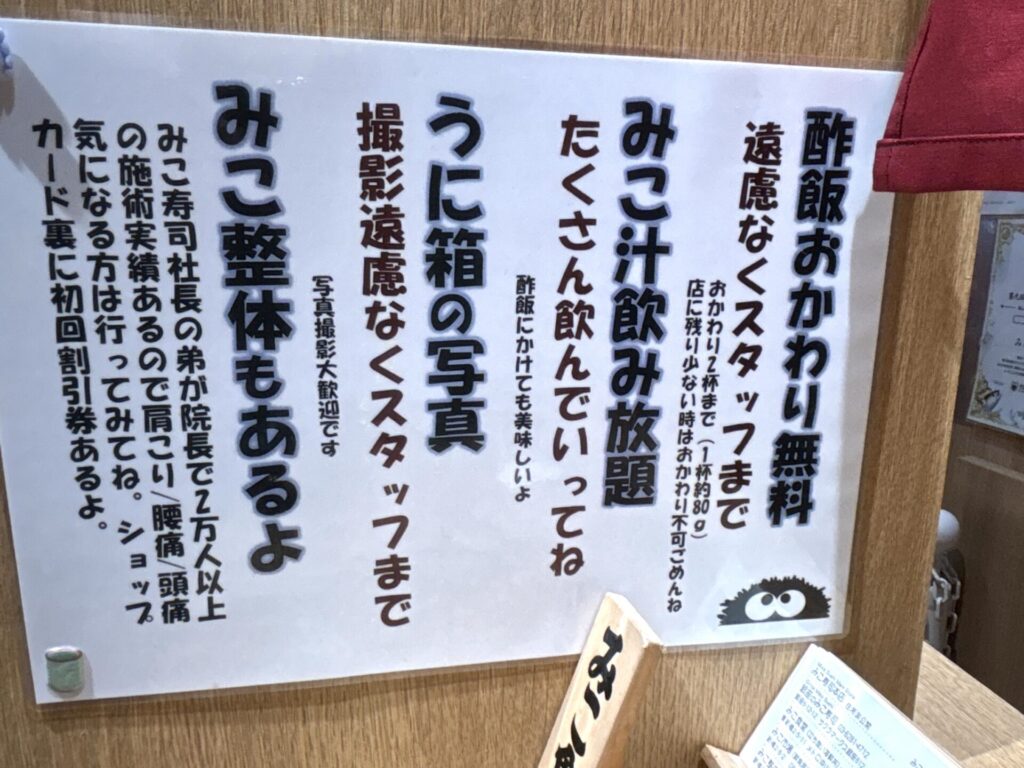 酢飯おかわり無料
遠慮なくスタッフまで
おかわり2杯まで（1杯約80g）
店に残り少ない時はおかわり不可ごめんね
みこ汁飲み放題
たくさん飲んでいってね
酢飯にかけても美味しいよ
うに箱の写真
撮影遠慮なくスタッフまで
写真撮影大歓迎です
みこ整体もあるよ
みこ寿司社長の弟が院長で2万人以上
の施術実績あるので肩こり/腰痛/頭痛
気になる方は行ってみてね。ショップ
カード裏に初回割引券あるよ。
みこ
みこ寿司本店